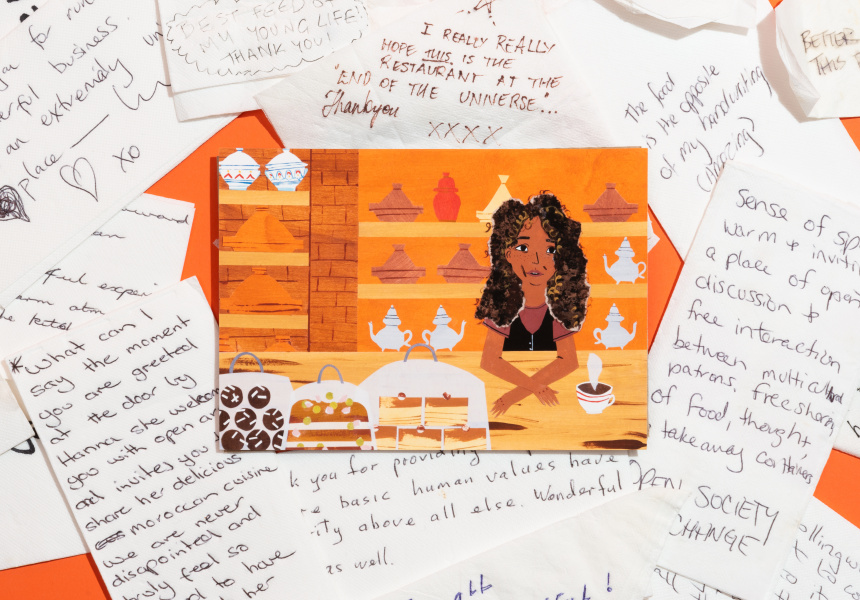 you for run
erful business.
an extremely
Place
XO
BEST FEED OF
MY YOUNG LIFE!!
THANK YOU!
I REALLY REALLY
HOPE THIS IS THE
RESTAURANT AT THE
"END OF THE UNIVERSE"...
Thankyou
XXXX
The food
is the opposite
of my handwriting
(amazing)
BETTER
THIS
Sense of
warm & inviti
a place of open
discussion &
free interaction
between multicultural
patrons. free sharing
of food, thought,
takeaway containers
SOCIETY
CHANGE
*What can I
say the moment
you are greeted
at the door by
Hanna she welcom
you with open
and invites you
share her delicious
moroccan cuisine
we are never
disapointed and
truly feel so
to have
her
k you for providing
basic human values have
ity above all else. Wonderful
as well.